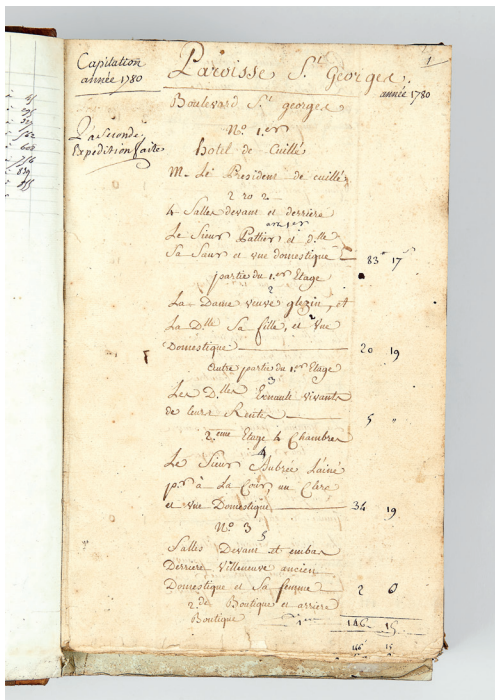 Capitation
année 1780
Paroisse St. Georges.
1
année 1780
Boulevard St. georges
La Seconde
Expedition faite
N.o 1.er
hotel de Cuillé
M. Le President de cuillé
2 20 2
4 Salles devant et derriere
au 1er
Le Sieur Pattier et d.lle
Sa Sœur et une domestique 83 17
partie du 1.er Etage
2
La Dame veuve glezin, et
La D.lle Sa fille, et Une
Domestique 20 19
autre partie du 1er Etage
3
Les D.lles Esnault vivante
de leurs Rentes 5 "
2.eme Etage 4 Chambres
4
Le Sieur Aubrée L'ainé
p.r à La Cour, un Clerc
et une Domestique 34 19
N.o 3
5
Salles Devant et embas
Derriere Villeneuve ancien
Domestique et Sa femme 2 0
2.de Boutique et arriere
Boutique
146 15
146 15